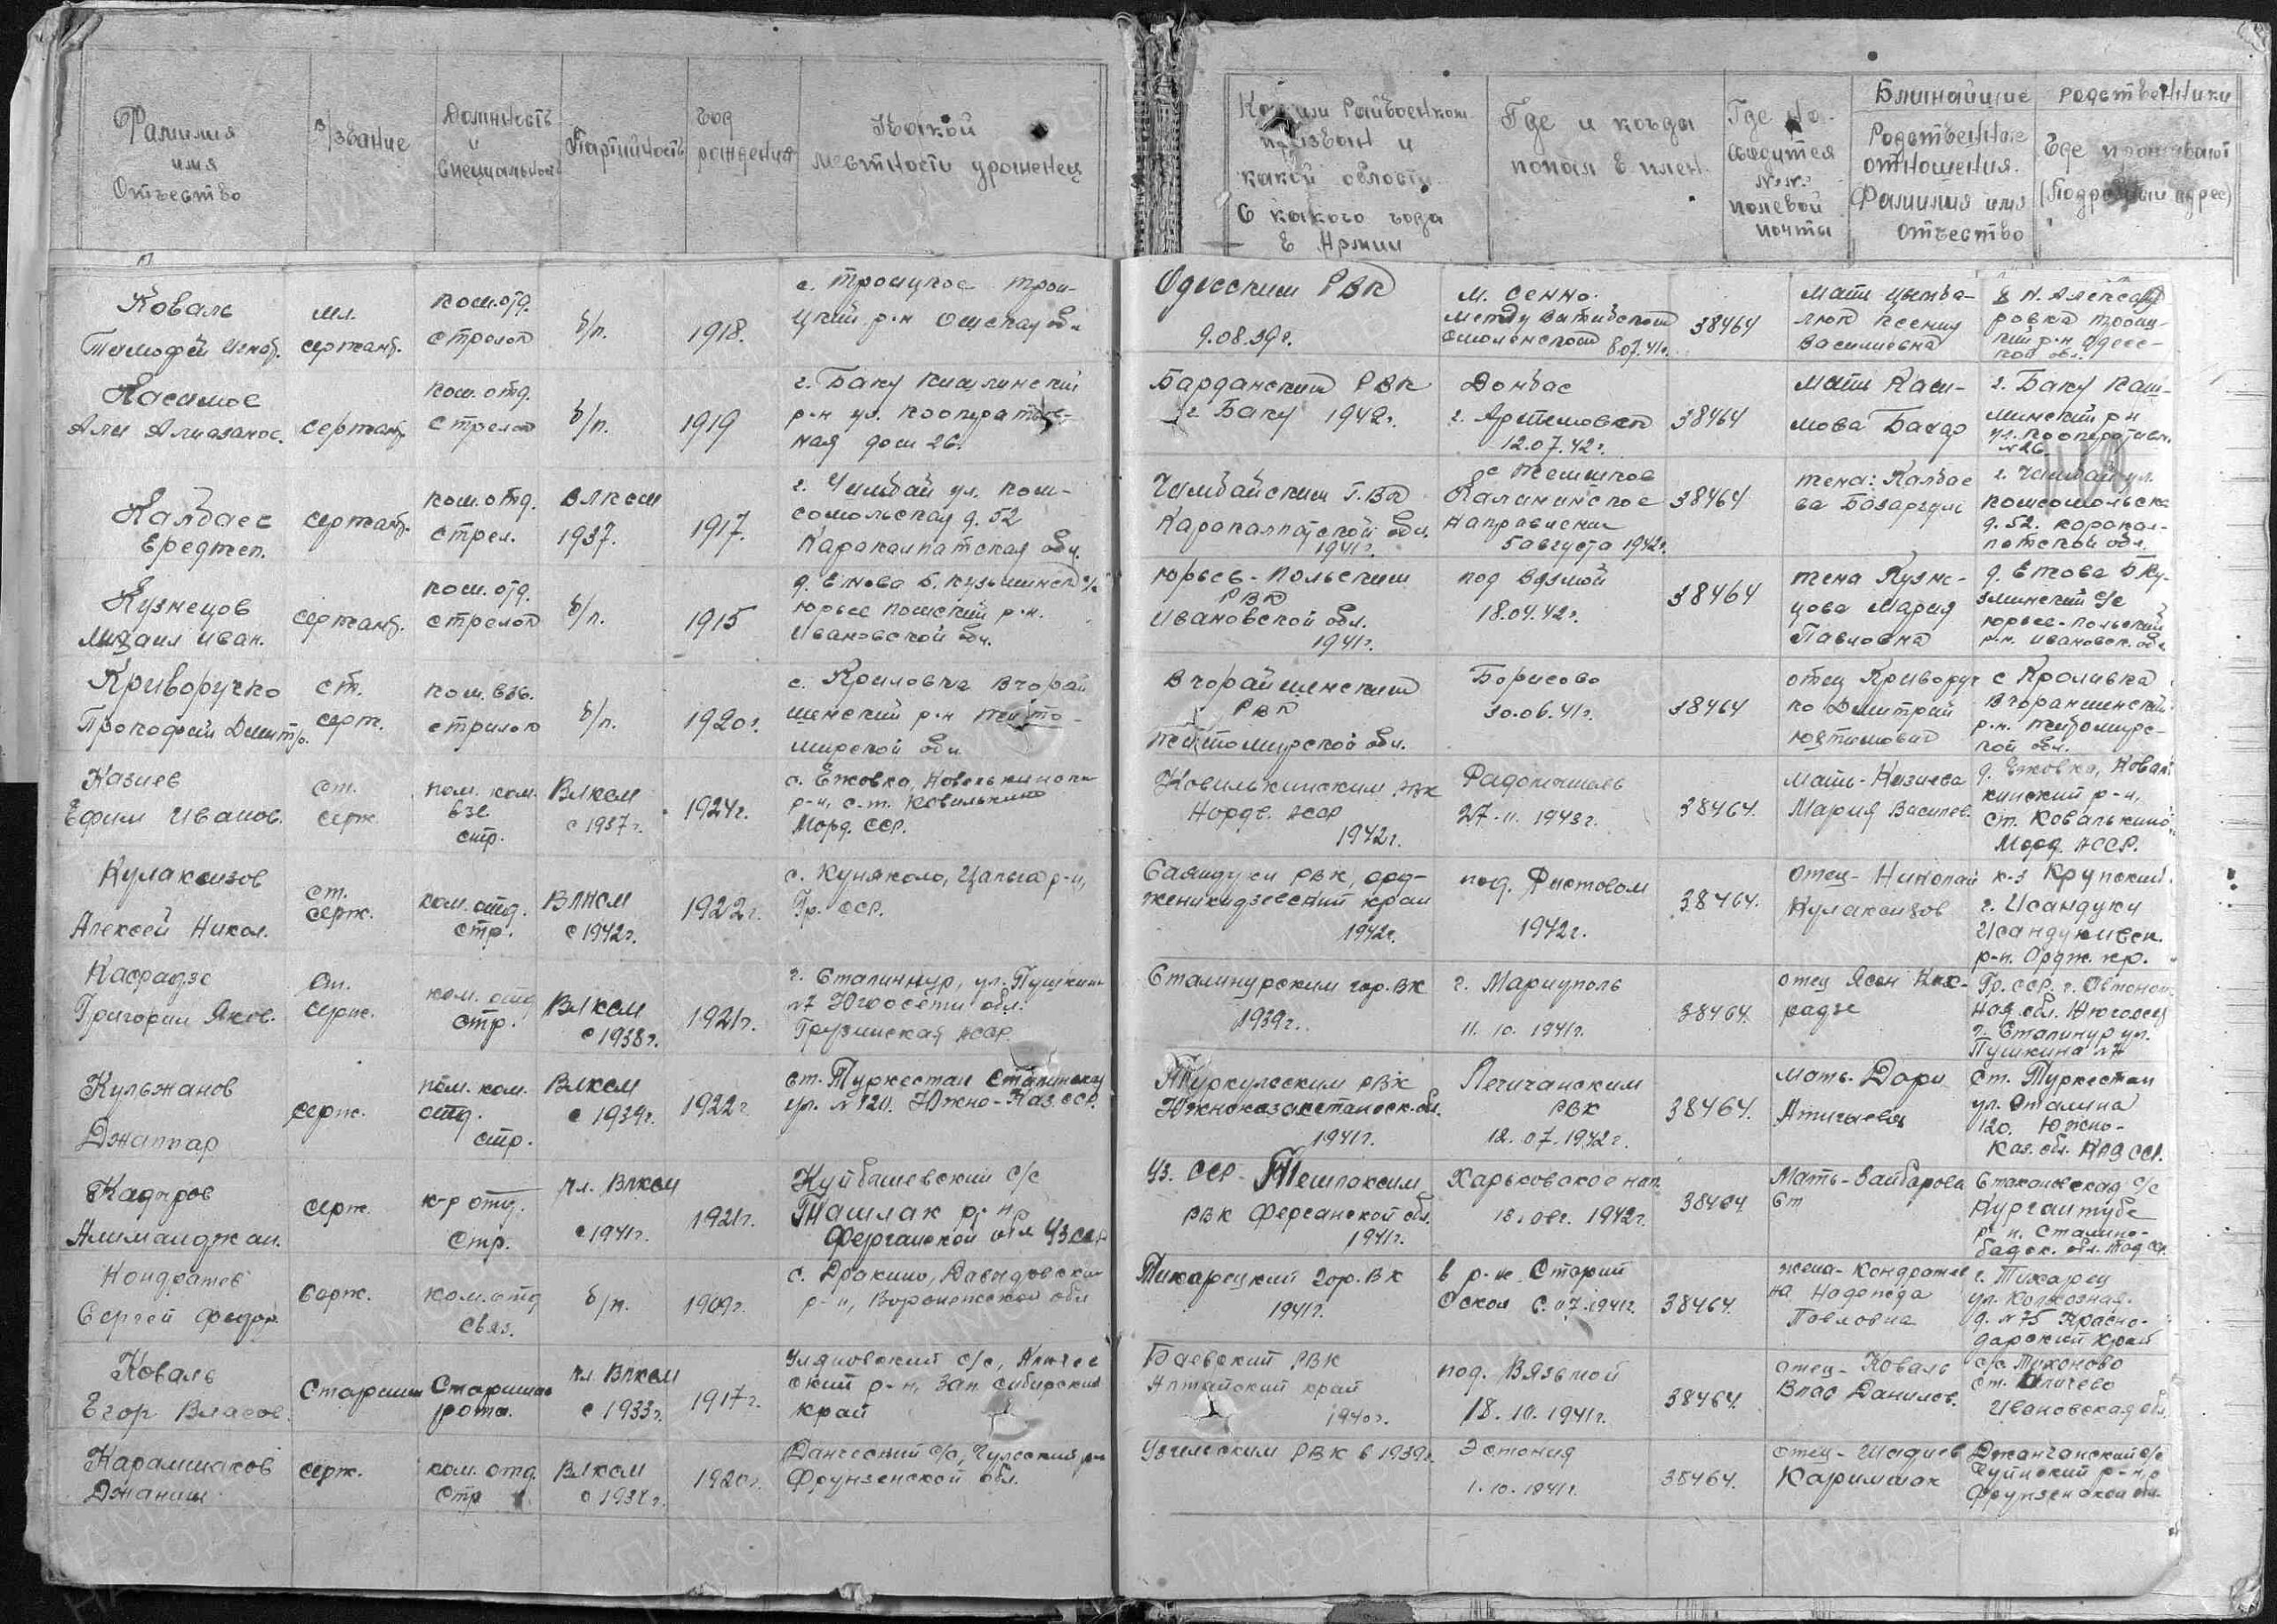 Фамилия
имя
Отчество
в/звание
Должность
и
специальность
Партийность
год
рождения
В какой
местности уроженец
Каким Райвоенком.
призван и
какой области
С какого года
в Армии
Где и когда
попал в плен.
Где на-
ходится
№№
полевой
почты
Ближайшие родственники
Родственные
отношения.
Фамилия имя
отчество
Где проживают
(Подробный адрес)
Коваль
Тимофей Игнат.
мл.
сержант.
ком.отд.
стрелок
б/п.
1918.
с. Троицкое Трои-
цкий р-н Одесская обл
Одесским РВК
9.08.39г.
м. Сенно.
между Витебском
Смоленском 8.07.41г.
38464
мать Цымба-
люк Ксения
Василиевна
в Н. Александ
ровка Трои-
кий р-н Одесс-
кой обл.
Касимов
Али Алиазанов.
сержант.
ком.отд.
стрелок
б/п.
1919
г. Баку Кишлинский
р-н ул. Кооператив-
ная дом 26.
Барданский РВК
г. Баку 1942г.
Донбас
г. Артемовск
12.07.42г.
38464
мать Каси-
мова Бахар
г. Баку Киш-
линский р-н
ул. Кооперативн.
№26.
Калбаев
Ереджеп.
сержант.
ком.отд.
стрел.
ВЛКСМ
1937.
1917.
г. Чимбай ул. Ком-
сомольская д. 52
Каракалпатская обл.
Чимбайским Г.ВК
Каракалпатской обл.
1941г.
Калининское
направление
5 августа 1942г.
38464
жена: Калбае
ва Базаргуль
г. Чимбай ул.
Комсомольска
д. 52. Каракал-
патской обл.
Кузнецов
Михаил Иван.
сержант.
ком.отд.
стрелок
б/п.
1915
д. Ежова Б. Кузьминск с/с
Юрьев Польский р-н.
Ивановской обл.
Юрьев-Польским
РВК
Ивановской обл.
1941г.
под Вязмой
18.04.42г.
38464
жена Кузне-
цова Мария
Павловна
д. Ежова Б Ку-
зминский с/с
Юрьев-Польский
р-н. Ивановск. обл
Криворучко
Прокофий Дмитр.
ст.
серж.
ком. взв.
стрелок
б/п.
1920г.
с. Криловка Вчорай
шенский р-н Жито-
мирской обл.
Вчорайшенским
РВК
Житомирской обл.
Борисово
30.06.41г.
38464
отец Криворуч
ко Дмитрий
Юхтимович
с Кроливка
Вчорашенский
р-н. Житомирс-
кой обл.
Казиев
Ефим Иванов.
ст.
серж.
пом. ком.
взв.
стр.
ВЛКСМ
с 1937г.
1924г.
с. Ежовка, Ковылкинск
р-н, с.т. Ковылкино
Морд. ССР.
Ковылкинским РВК
Морд. АССР
1942г.
Радомышль
27.11.1943г.
38464.
Мать-Казиева
Мария Василев.
д. Ежовка, Ковыл
кинский р-н,
ст. Ковалькино,
Морд. АССР.
Кулаксизов
Алексей Никол.
ст.
серж.
ком. отд.
стр.
ВЛКСМ
с 1942г.
1922г.
с. Куняколо, Цалька р-н,
Гр. ССР.
РВК, орд-
женикидзевский край
1942г.
под. Ростовом
1942г.
38464.
Отец-Николай
Кулаксизов
к-з Крупской.
г. Исандуки
р-н. Ордж. кр.
Григорий Яков.
ст.
серж.
ком. отд
стр.
ВЛКСМ
с 1938г.
1921г.
г. Сталинир, ул. Пушкин
№7 Югоосети обл.
Грузинская АССР.
Сталинурским гор.ВК
1939г.
г. Мариуполь
11.10.1941г.
38464.
отец Ясон Ках-
радзе
Гр. ССР. г. Автоном
ная обл. Югоосет
г. Сталинир ул.
Пушкина №7
Кульжанов
Джаппар
серж.
пом. ком.
отд.
стр.
ВЛКСМ
с 1939г.
1922г
ст. Туркестан Сталинску
ул. №120. Южно-Каз.ССР.
Туркулсским РВК
Южноказакстанск. обл.
1941г.
РВК
12.07.1942г.
38464.
Мать-Дари
ст. Туркестан
ул. Сталина
120. Южно-
Каз. обл. Каз ССР.
Кадыров
Алиманджан.
серж.
к-р отд.
стр.
чл. ВЛКСМ
с 1941г.
1921г.
Куйбашевский с/с
Ташлак р-н,
Ферганской обл Уз ССР
Уз. ССР-Тешлаксим
РВК Ферганской обл.
1941г.
Харьковское нап.
18. авг. 1942г.
38464
Мать-Зайбарова
Ст
Стахановская с/с
Кургантубе
р-н. Сталино-
бадск. обл. Тад ССР.
Кондратев
Сергей Федор.
серж.
ком.отд
связ.
б/п.
1909г.
с. Дракино, Давыдовски
р-н, Воронежской обл
Тихарецкий гор. ВК
1941г.
в р-не Старий
Оскол с. 07.1941г.
38464.
жена-Кондратев
на Надежда
Повловна
г. Тихарец
ул. Колхозная.
д. №75 Красно-
дарский край
Коваль
Егор Власов.
Старшин
Старшин
рота.
чл. ВЛКСМ
с 1933г.
1917г.
Уляновский с/с, Ключев
ский р-н, Зап. сибирский
край
Баевский РВК
Алтайский край
1940г.
под. Вязьмой
18.10.1941г.
38464.
отец-Коваль
Влас Данилов.
с/с Тихоново
ст.
Ивановская обл.
Карамшаков
Джаниш
серж.
ком. отд.
стр
ВЛКСМ
с 1938г.
1920г.
Данческий с/с, Чулеский р-н
Фрунзенской обл.
РВК в 1939г.
Эстония
1.10.1941г.
38464.
отец-Шадиев
Каримшак
Джанганский с/с
Чуйнский р-н,
Фрунзенской обл.